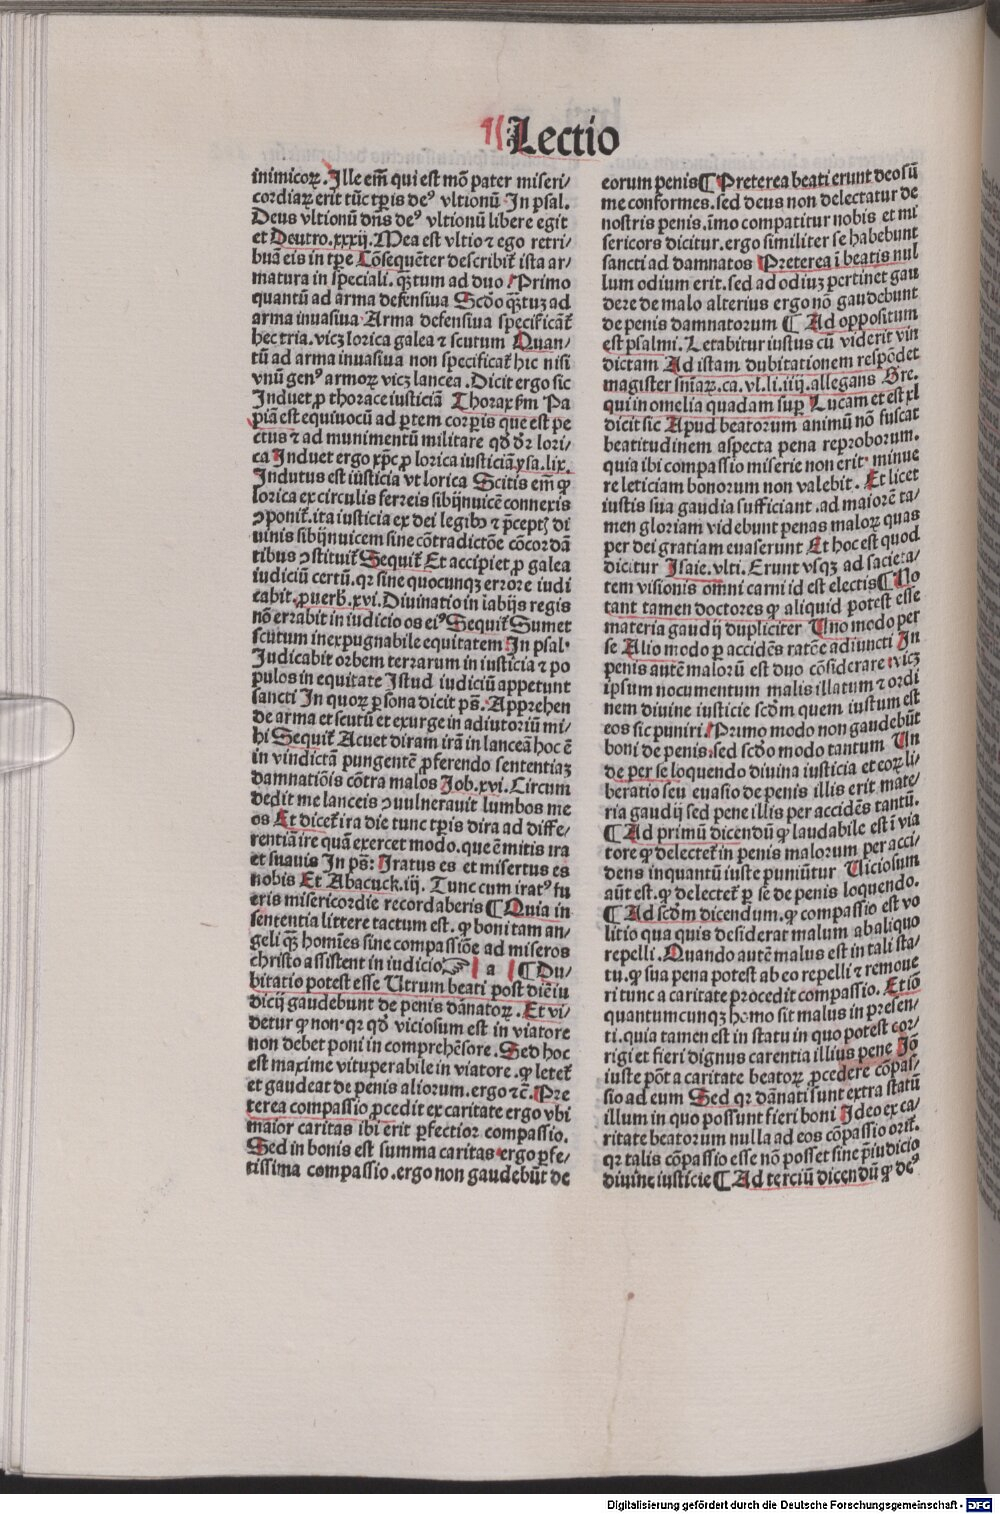 ¶ Lectio
inimicoꝝ. Ille em̃ qui est mõ pater miseri/
cordiaꝝ erit tũc tꝑis deꝰ vltionũ In psal.
Deus vltionũ dñs deꝰ vltionũ libere egit
et Deutro.xxxij. Mea est vltio ⁊ ego retri/
buã eis in tꝑe Cõseq̃nter describit̃ ista ar/
matura in speciali. qͣ̃tum ad duo Primo
quantũ ad arma defensiua Scđo qͣ̃tuꝫ ad
arma inuasiua Arma defensiua specificãt̃
hec tria. vicꝫ lorica galea ⁊ scutum Quan/
tũ ad arma inuasiua non specificat̃ hic nisi
vnũ genꝰ armoꝝ vicꝫ lancea. Dicit ergo sic
Induet ꝓ thorace iusticiã Thorax ẜm Pa
piã est equiuocũ ad ꝑtem corꝑis que est pe
ctus ⁊ ad munimentũ militare qđ dr̃ lori/
ca Induet ergo xp̃c ꝓ lorica iusticiã ysa.lix.
Indutus est iusticia vt lorica Scitis em̃ ꝙ
lorica ex circulis ferreis sibijnuicẽ connexis
ↄponit̃. ita iusticia ex dei legibꝫ ⁊ p̃ceptꝭ di
uinis sibijnuicem sine cõtradictõe cõcordã
tibus ↄstituit̃ Sequit̃ Et accipiet ꝓ galea
iudiciũ certũ. qꝛ sine quocunqꝫ errore iudi
cabit. ꝓuerb̃.xvi. Diuinatio in labijs regis
nõ errabit in iudicio os eiꝰ Sequit̃ Sumet
scutum inexpugnabile equitatem In psal.
Iudicabit orbem terrarum in iusticia ⁊ po
pulos in equitate Istud iudiciũ appetunt
sancti In quoꝝ ꝑsõna dicit pš. Apprehen
de arma et scutũ et exurge in adiutoriũ mi/
hi Sequit̃ Acuet diram irã in lanceã hoc ẽ
in vindictã pungentẽ ꝓferendo sententiaꝫ
damnatiõis cõtra malos Job.xvi. Circum
dedit me lanceis ↄuulnerauit lumbos me
os Et dicet̃ ira die tunc tꝑis dira ad diffe/
rentiã ire quã exercet modo. que ẽ mitis ira
et suauis In pš: Iratus es et misertus es
nobis Et Abacuck.iij. Tunc cum iratꝰ fu
eris misericordie recordaberis ¶ Quia in
sententia littere tactum est. ꝙ boni tam an/
geli qͣ̃ homĩes sine compassiõe ad miseros
christo assistent in iudicio ☞ a ¶ Du/
bitatio potest esse Utrum beati post diẽ iu
dicij gaudebunt de penis dãnatoꝝ. Et vi/
detur ꝙ non. qꝛ qđ viciosum est in viatore
non debet poni in comprehẽsore. Sed hoc
est maxime vituperabile in viatore. ꝙ letet̃
et gaudeat de penis aliorum. ergo ⁊c̃. Pre
terea compassio ꝓcedit ex caritate ergo vbi
maior caritas ibi erit ꝑfectior compassio.
Sed in bonis est summa caritas ergo ꝑfe/
tissima compassio. ergo non gaudebũt de
eorum penis ¶ Preterea beati erunt deo sũ
me conformes. sed deus non delectatur de
nostris penis. ĩmo compatitur nobis et mi
sericors dicitur. ergo similiter se habebunt
sancti ad damnatos Preterea ĩ beatis nul
lum odium erit. sed ad odiuꝫ pertinet gau
dere de malo alterius ergo nõ gaudebunt
de penis damnatorum ¶ Ad oppositum
est psalmi. Letabitur iustus cũ viderit vin
dictam Ad istam dubitationem respõdet
magister sñiaꝝ.ca.vl.li.iiij. allegans Gre.
qui in omelia quadam suꝑ Lucam et est xl
dicit sic Apud beatorum animũ nõ fuscat
beatitudinem aspecta pena reproborum.
quia ibi compassio miserie non erit minue
re leticiam bonorum non valebit. Et licet
iustis sua gaudia sufficiant. ad maiorẽ ta/
men gloriam videbunt penas maloꝝ quas
per dei gratiam euaserunt Et hoc est quod
dicitur Isaie.vlti. Erunt vsqꝫ ad sacieta/
tem visionis om̃i carni id est electis ¶ No
tant tamen doctores ꝙ aliquid potest esse
materia gaudij dupliciter Uno modo per
se Alio modo ꝑ accidẽs ratõe adiuncti In
penis autẽ malorũ est duo cõsiderare vicꝫ
ipsum nocumentum malis illatum ⁊ ordi
nem diuine iusticie scđm quem iustum est
eos sic puniri. Primo modo non gaudebũt
boni de penis. sed scđo modo tantum Un
de per se loquendo diuina iusticia et eoꝝ li/
beratio seu euasio de penis illis erit mate/
ria gaudij sed pene illis per accidẽs tantũ.
¶ Ad primũ dicendũ ꝙ laudabile est ĩ via
tore ꝙ delectet̃ in penis malorum per acci/
dens inquantũ iuste puniũtur Uiciosum
aũt est. ꝙ delectet̃ ꝑ se de penis loquendo.
¶ Ad scđm dicendum. ꝙ compassio est vo
litio qua quis desiderat malum ab aliquo
repelli. Quando autẽ malus est in tali sta/
tu. ꝙ sua pena potest ab eo repelli ⁊ remoue
ri tunc a caritate procedit compassio. Et iõ
quantumcunqꝫ homo sit malus in presen/
ti. quia tamen est in statu in quo potest cor/
rigi et fieri dignus carentia illius pene Iõ
iuste põt a caritate beatoꝝ ꝓcedere cõpas/
sio ad eum Sed qꝛ dãnati sunt extra statũ
illum in quo possunt fieri boni Ideo ex ca/
ritate beatorum nulla ad eos cõpassio orit̃.
qꝛ talis cõpassio esse nõ posset sine p̃iudicio
diuine iusticie ¶ Ad terciũ dicendũ ꝙ deꝰ
Digitalisierung gefördert durch die Deutsche Forschungsgemeinschaft - DFG